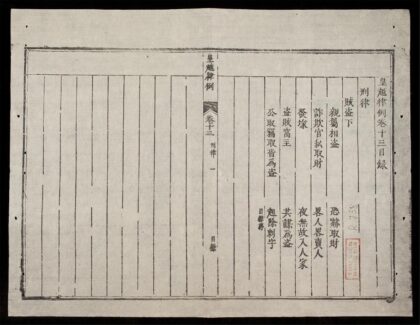 皇越律例卷十三目錄
刑律
賊盜下
親屬相盜
恐嚇取財
詐欺官私取財
畧人畧賣人
發塚
夜無故入人家
盜賊窩主
共謀為盜
公取竊取皆為盜
起除刺字
目錄終
皇越律例
卷十三
刑律
一
目錄